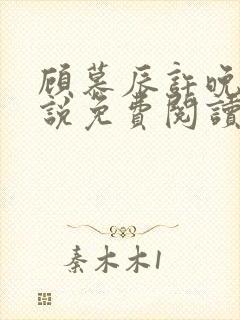 顾慕辰許晚
說免費閱讀
秦木木1